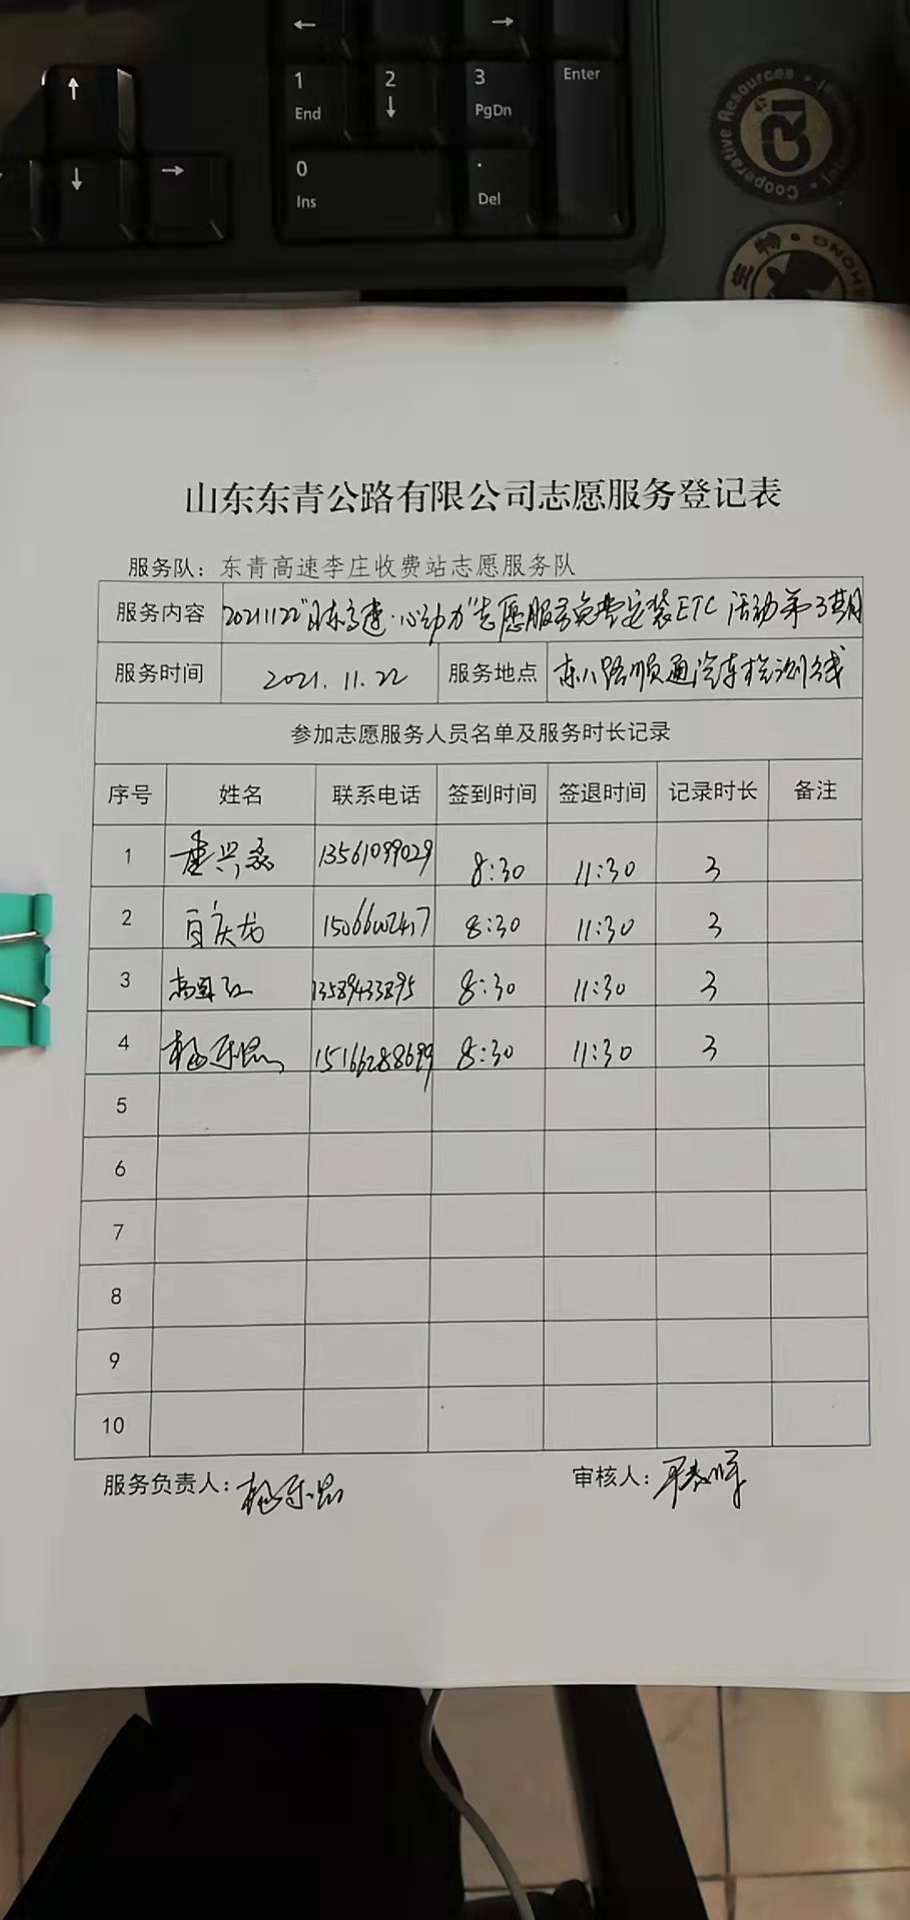 ←
→
1 2 3 Enter
End ↓ PgDn
↑
0 .
Ins Del
↓ →
Cooperative Resources
山东东青公路有限公司志愿服务登记表
服务队：东青高速李庄收费站志愿服务队
服务内容 20211122"日东高速·心动力"志愿服务免费安装ETC活动第3期
服务时间 2021.11.22 服务地点 东八路顺通汽车检测线
参加志愿服务人员名单及服务时长记录
序号 姓名 联系电话 签到时间 签退时间 记录时长 备注
1 13561099029 8:30 11:30 3
2 8:30 11:30 3
3 13589433895 8:30 11:30 3
4 15166288699 8:30 11:30 3
5
6
7
8
9
10
服务负责人： 审核人：